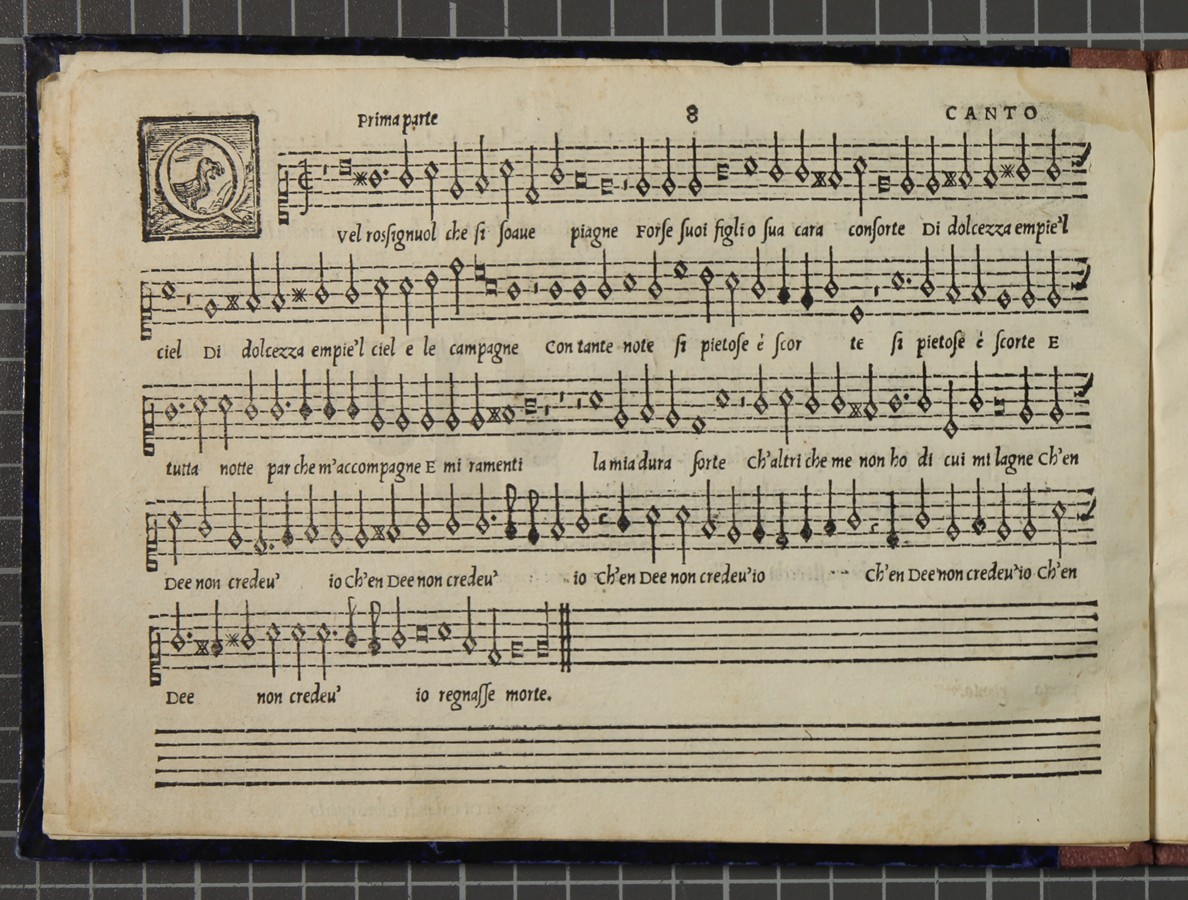 Prima parte 8 CANTO
Q Vel rosſignuol che ſi ſoaue piagne Forſe ſuoi figli o ſua cara conſorte Di dolcezza empie'l
ciel Di dolcezza empie'l ciel e le campagne Con tante note ſi pietoſe é ſcor te ſi pietoſe é ſcorte E
tutta notte par che m'accompagne E mi ramenti la mia dura ſorte Ch'altri che me non ho di cui mi lagne Ch'en
Dee non credeu' io Ch'en Dee non credeu' io Ch'en Dee non credeu'io Ch'en Dee non credeu'io Ch'en
Dee non credeu' io regnaſſe morte.